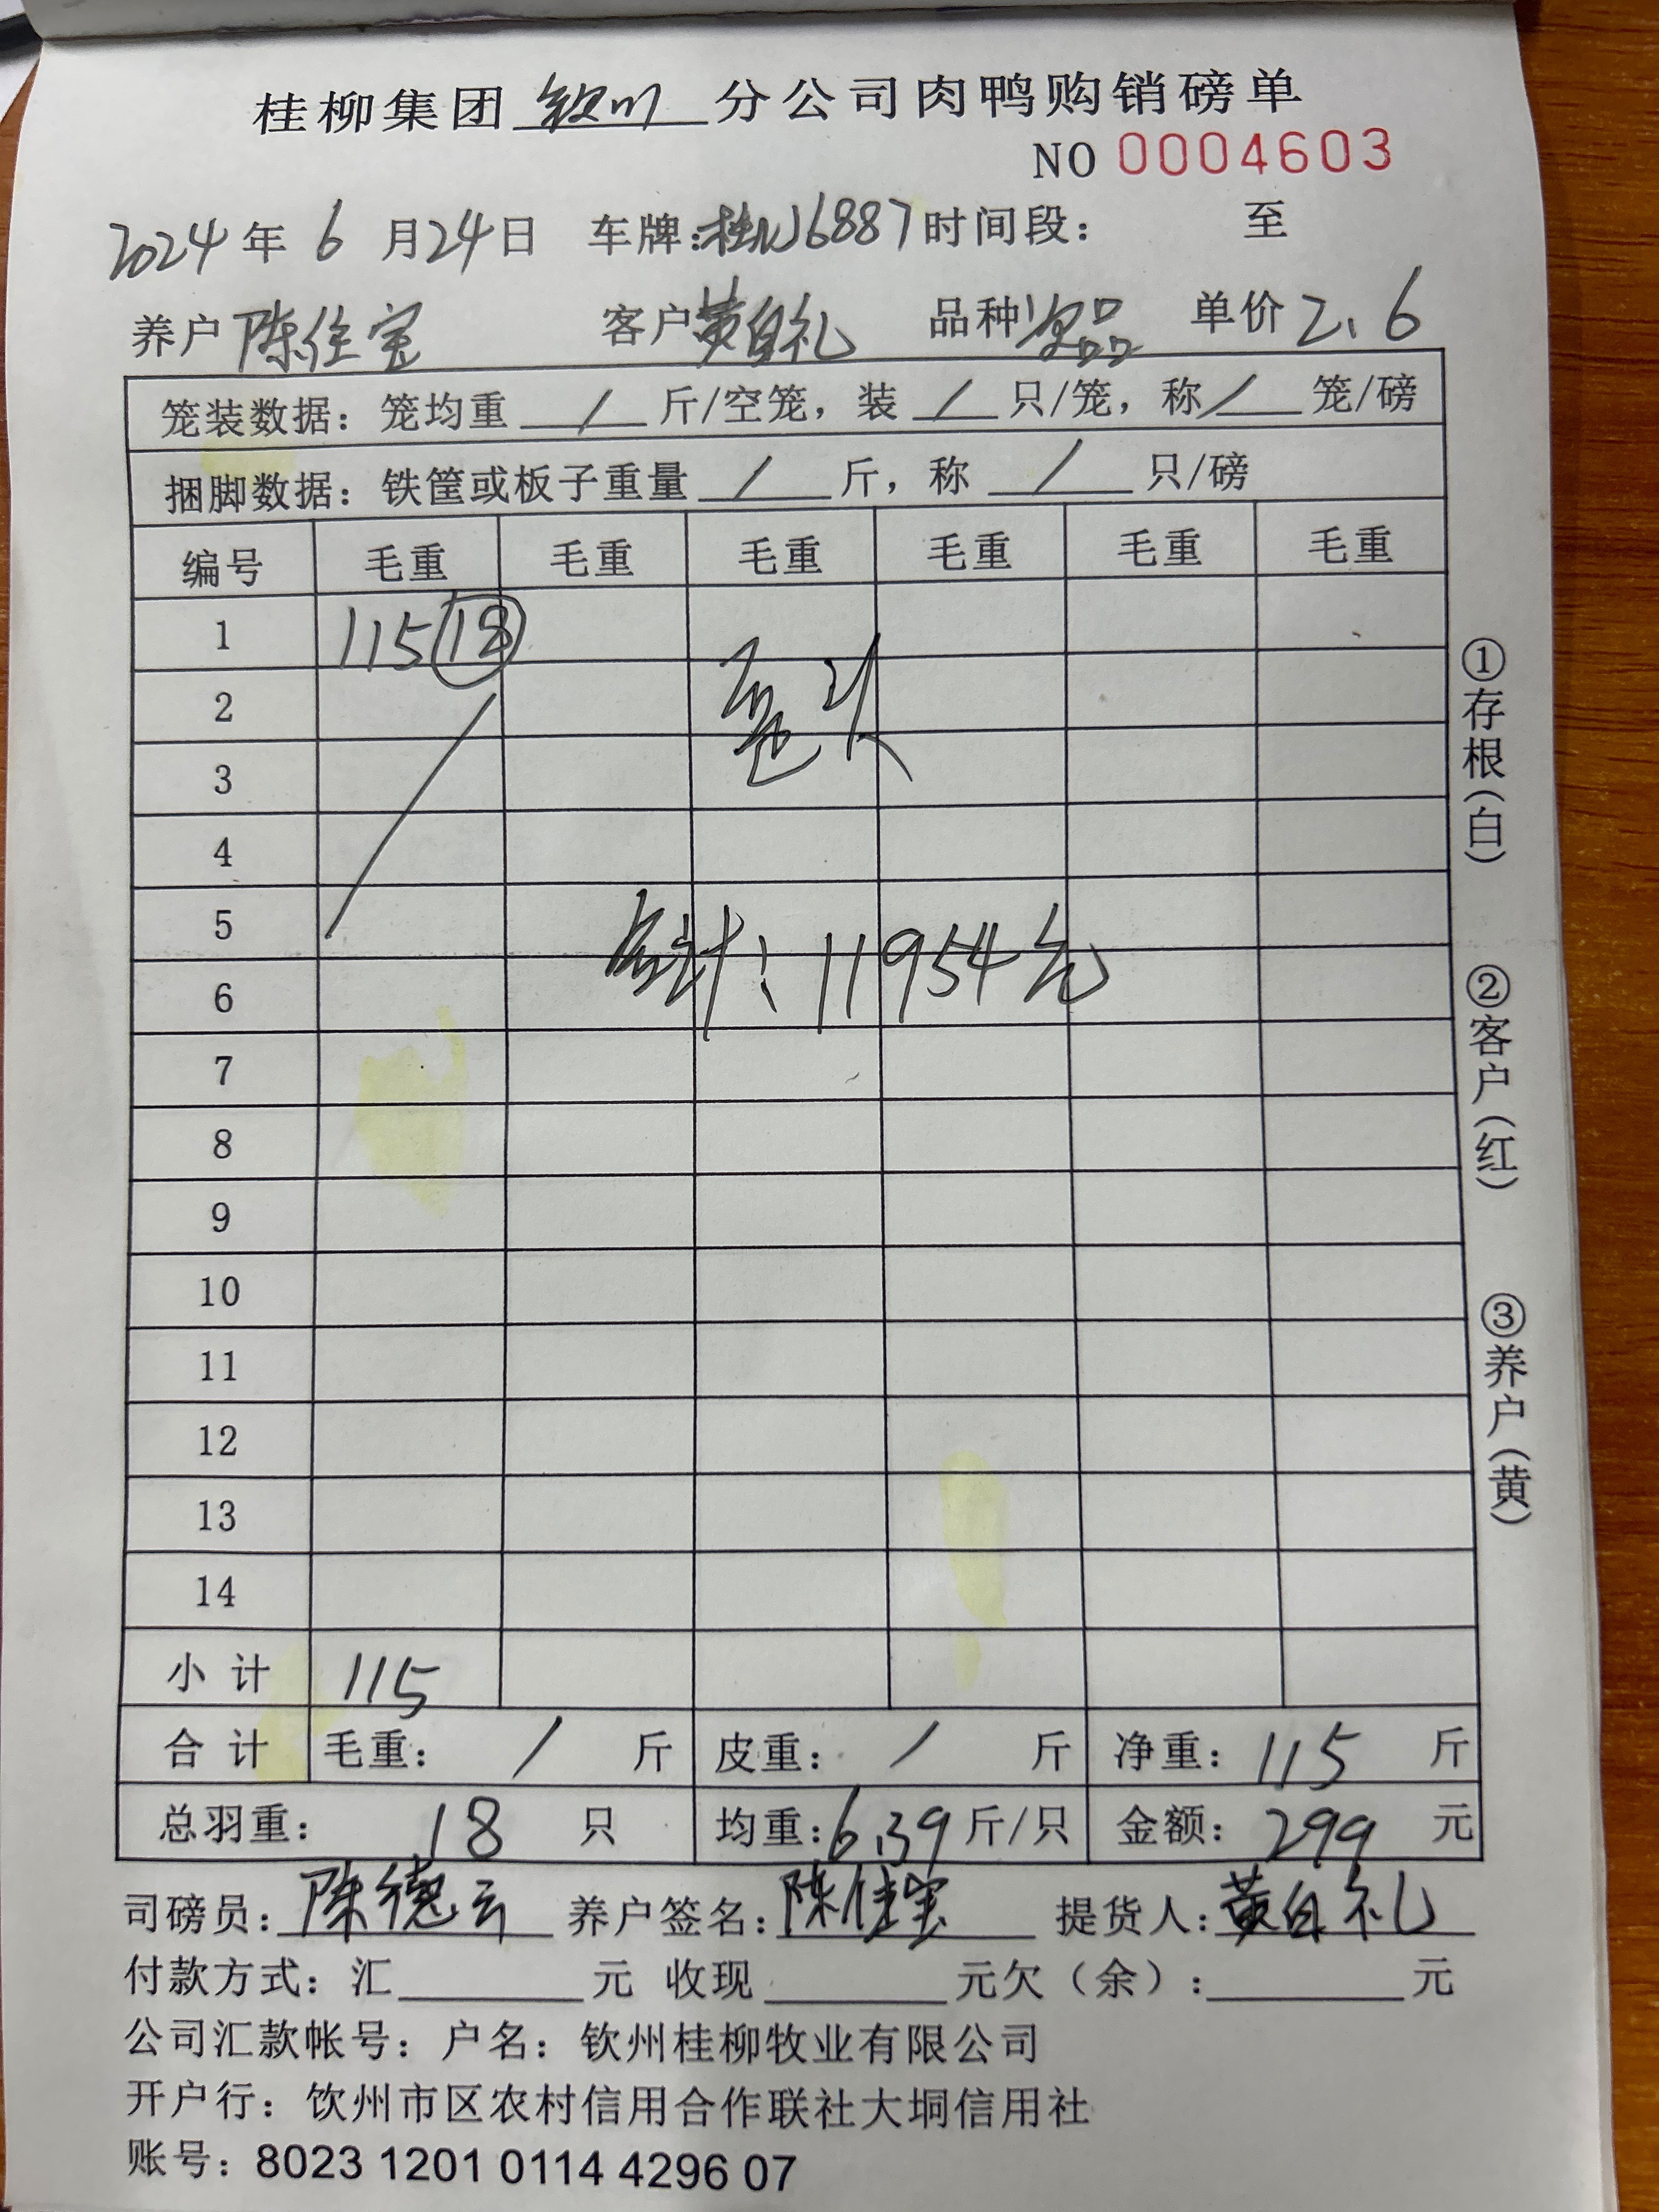 桂柳集团 钦州 分公司肉鸭购销磅单
NO 0004603
2024 年 6 月 24 日 车牌: 桂N J6887 时间段: 至
养户 陈佳宝 客户 黄自礼 品种 次品 单价 2.6
笼装数据: 笼均重 / 斤/空笼, 装 / 只/笼, 称 / 笼/磅
捆脚数据: 铁筐或板子重量 / 斤, 称 / 只/磅
编号 毛重 毛重 毛重 毛重 毛重 毛重
1 115 18
2
3
4
5
合计: 11954元
6
7
8
9
10
11
12
13
14
小计 115
合计 毛重: / 斤 皮重: / 斤 净重: 115 斤
总羽重: 18 只 均重: 6.39 斤/只 金额: 299 元
司磅员: 陈德云 养户签名: 陈佳宝 提货人: 黄自礼
付款方式: 汇 元 收现 元欠(余): 元
公司汇款帐号: 户名: 钦州桂柳牧业有限公司
开户行: 饮州市区农村信用合作联社大垌信用社
账号: 8023 1201 0114 4296 07
①存根(白)
②客户(红)
③养户(黄)